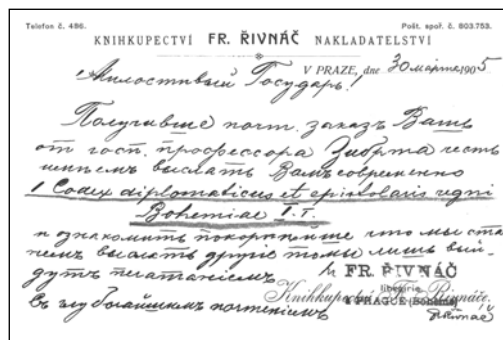 Telefon č. 486.
Pošt. spoř. č. 803.753.
KNIHKUPECTVÍ FR. ŘIVNÁČ NAKLADATELSTVÍ
V PRAZE, dne 30 марта 1905
Милостивый Государь!
Получивше почт. заказ Вашъ
от госп. профессора Зибрта честь
имѣемъ выслать Вамъ современно
1 Codex diplomaticus et epistolaris regni
Bohemiae I. T.
и ознакомить покорнѣйше что мы ста
немъ высылать другіе томы лишь вый-
дутъ печатаніемъ
FR. ŘIVNÁČ
librairie
Knihkupectví Fr. Řivnáče.
à PRAGUE (Bohême)
Съ глубочайшимъ почтеніемъ
Řivnáč